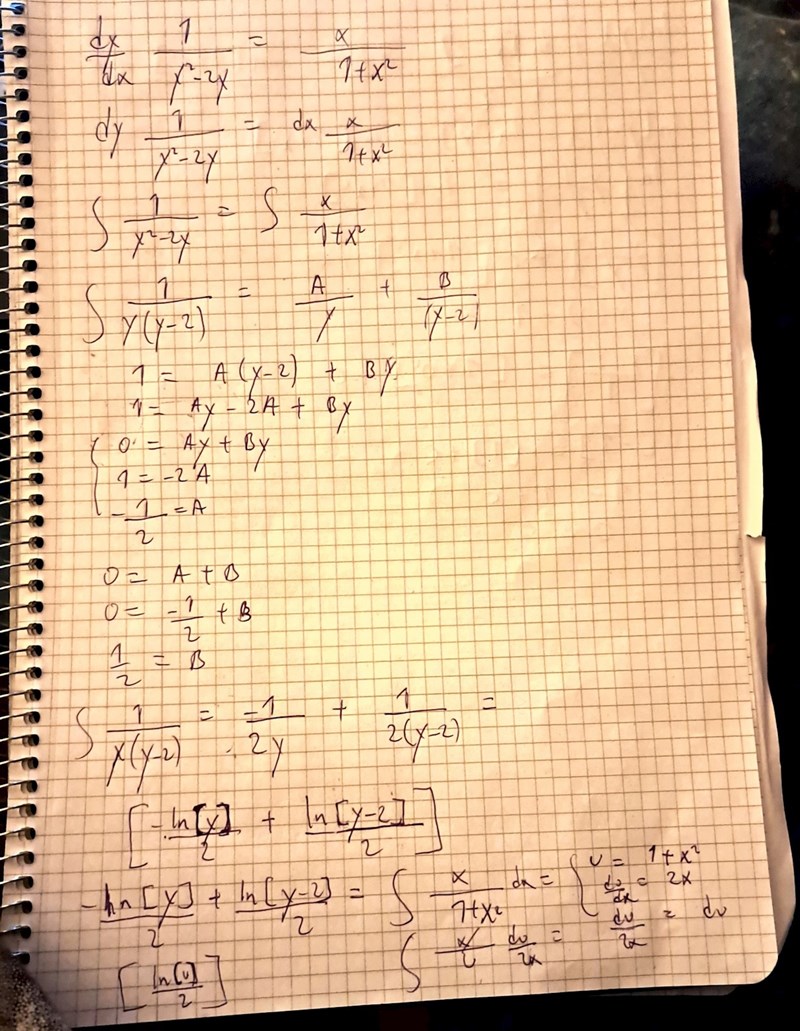 dx/dx 1/(y²-2y) = x/(1+x²)
dy 1/(y²-2y) = dx x/(1+x²)
∫ 1/(y²-2y) = ∫ x/(1+x²)
∫ 1/(y(y-2)) = A/y + B/(y-2)
1 = A(y-2) + By
1 = Ay - 2A + By
{ 0 = Ay + By
1 = -2A
-1/2 = A
0 = A + B
0 = -1/2 + B
1/2 = B
∫ 1/(y(y-2)) = -1/2y + 1/(2(y-2)) =
[-ln[y]/2 + ln[y-2]/2]
-ln[y]/2 + ln[y-2]/2 = ∫ x/(1+x²) dx = { u = 1+x²
du/dx = 2x
du/2x = du
∫ x/u du/2x =
[ln[u]/2]